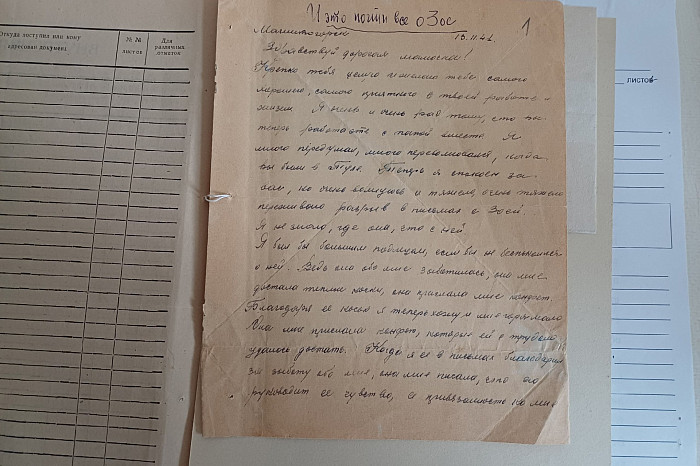 Откуда поступил или кому
адресован документ
№ №
листов
Для
различных
отметок
И это почти все о Зое
1
Магнитогорск
13.11.41
Здравствуй дорогая мамочка!
Крепко тебя целую и желаю тебе самого
хорошего, самого приятного в твоей работе и
жизни. Я очень и очень рад тому, что ты
теперь работаешь с папой вместе. Я
много передумал, много переволновался, когда
вы были в Туле. Теперь я спокоен за
вас, но очень волнуюсь и тяжело, очень тяжело
переживаю разрыв в письмах с Зоей.
Я не знаю, где она, что с ней.
Я был бы большим подлецом, если бы не беспокоился
о ней. Ведь она обо мне заботилась, она мне
достала теплые носки, она прислала мне конфет.
Благодаря ее носок я теперь хожу и
Она мне прислала конфет, которые ей с трудом
удалось достать. Когда я ее в письмах благодарил
за заботу обо мне, она мне писала, что ею
руководит ее чувство, ее привязанность ко мне.
листов